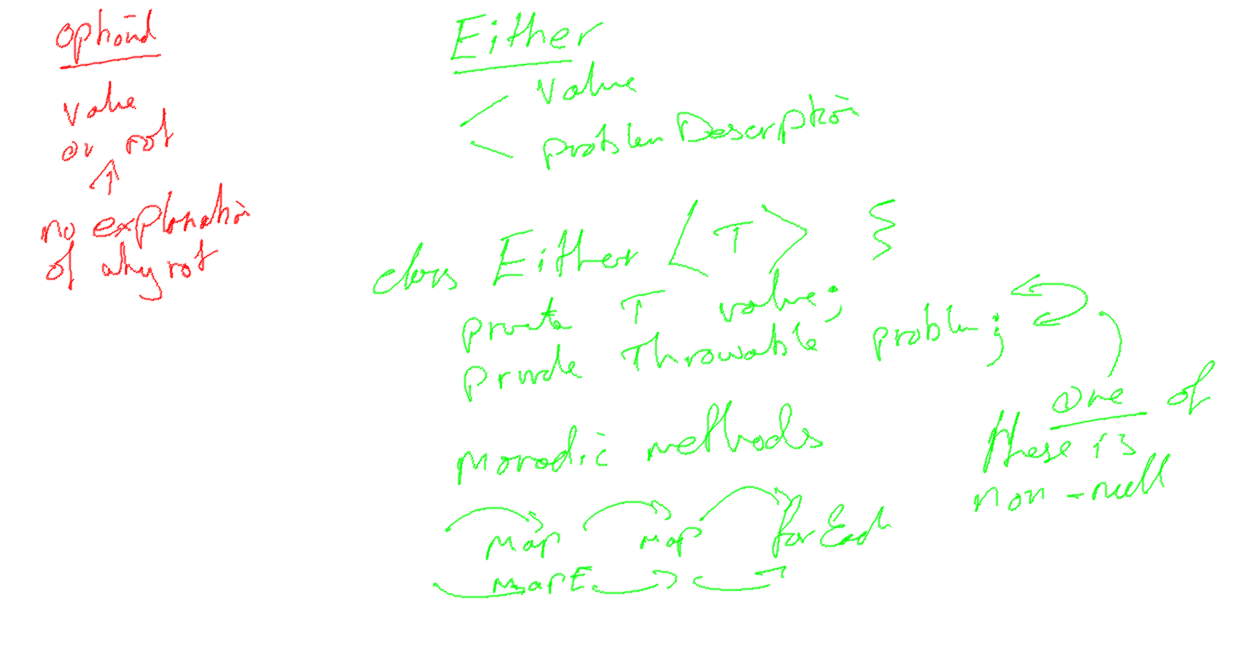 Optional
value
or not
↑
no explanation
of why not
Either
< value
problem Description
class Either <T> {
private T value;
private Throwable problem;
one of
these is
non-null
Monadic methods
Map Map forEach
MapE